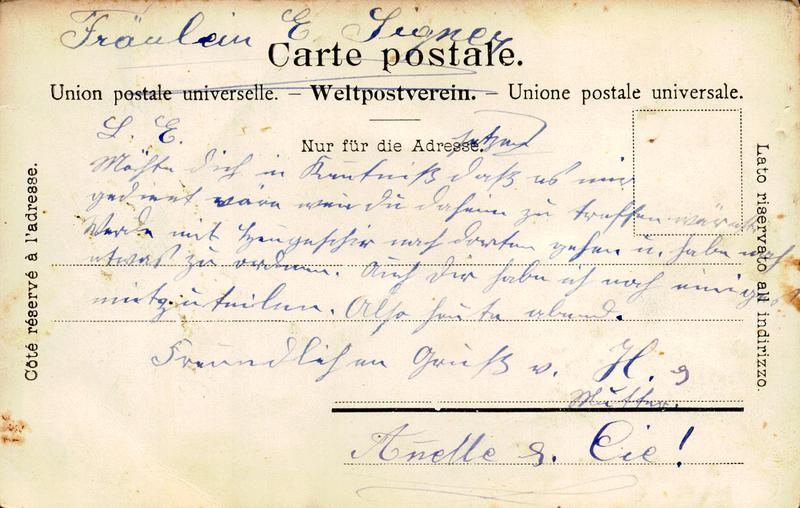 Fräulein E. Signer
Carte postale.
Union postale universelle. – Weltpostverein. – Unione postale universale.
Nur für die Adresse.
Côté réservé à l'adresse.
Lato riservato all indirizzo.
L. E.
Möchte dich in Kenntniß setzen daß es mir
gedient wäre wenn du daheim zu treffen wärest
Werde mit nach dorten gehen u. habe noch
etwas zu ordnen. Auch dir habe ich noch einiges
mitzuteilen. Also heute abend.
Freundlichen Gruß v. H. &
Mutter.
& Cie!